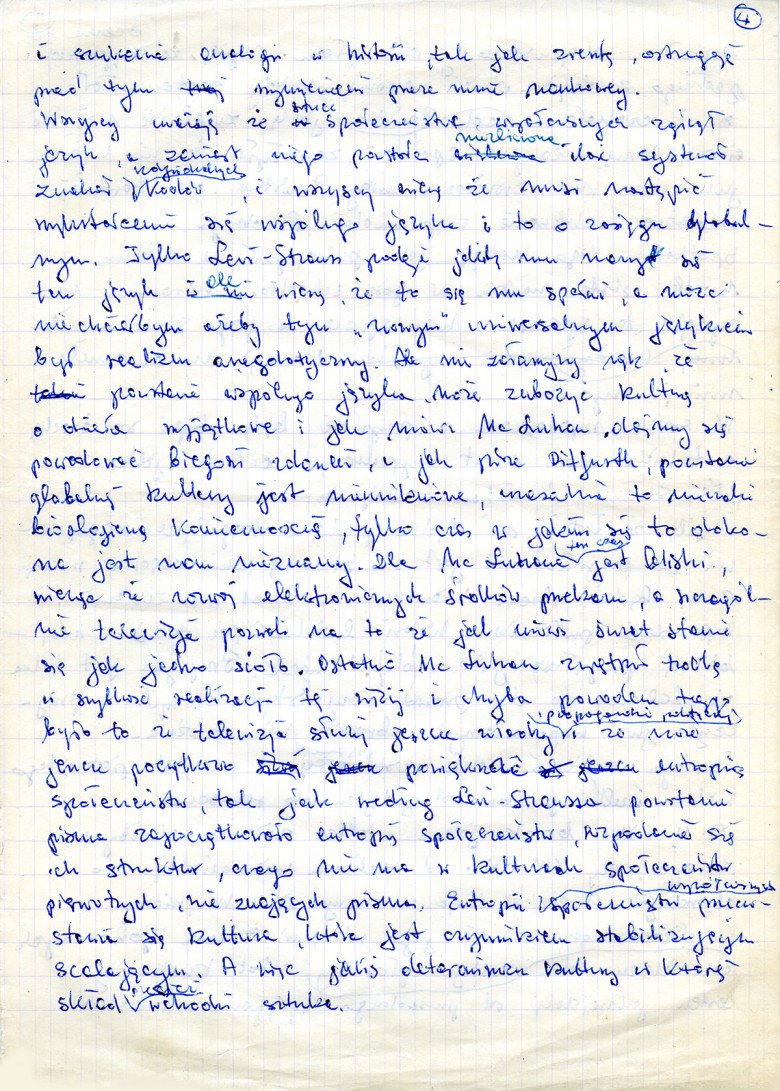 4
i szukanie analogii w historii, tak jak zresztą, ostrzegają
przed tym myśliciele przez nich naukowcy.
Wszyscy uważają że w sztuce społeczeństw współczesnych zginął
język, a zamiast niego powstała niezliczona ilość systemów
znaków i kodów indywidualnych, i wszyscy wierzą że musi nastąpić
wykształcenie się wspólnego języka i to o zasięgu global-
nym. Tylko Levi-Strauss podaje jakby mu marzył się
ten język ale nie wierzy, że to się mu spełni, a może
nie chciałbym ażeby tym „nowym” uniwersalnym językiem
był realizm anegdotyczny. Ale nie załamujmy rąk, że
powstanie wspólnego języka może zubożyć kulturę
o dzieła wyjątkowe i jak mówi Mc Luhan, dajmy się
powodować biegowi zdarzeń, a jak pisze Ditfurth, powstanie
globalnej kultury jest nieuniknione, uzasadnia to niemal
biologiczną koniecznością, tylko czas w jakim się to doko-
na jest nam nieznany. Dla Mc Luhana ten czas jest bliski,
wierzy że rozwój elektronicznych środków przekazu, a szczegól-
nie telewizja pozwoli na to że jak mówi świat stanie
się jak jedno sioło. Ostatnio Mc Luhan zwątpił trochę
w szybkość realizacji tej wizji i chyba powodem tego
było to że telewizja służy jeszcze władcy i propagandzie politycznej, co może
jeszcze początkowo powiększać entropię
społeczeństw, tak jak według Levi-Straussa powstanie
pisma zapoczątkowało entropię społeczeństw, rozpadanie się
ich struktur, czego nie ma w kulturach społeczeństw
pierwotnych, nie znających pisma. Entropii społeczeństw współczesnych przeciw-
stawia się kultura, która jest czynnikiem stabilizującym
scalającym. A więc jakiś determinizm kultury w której
skład wchodzi sztuka.